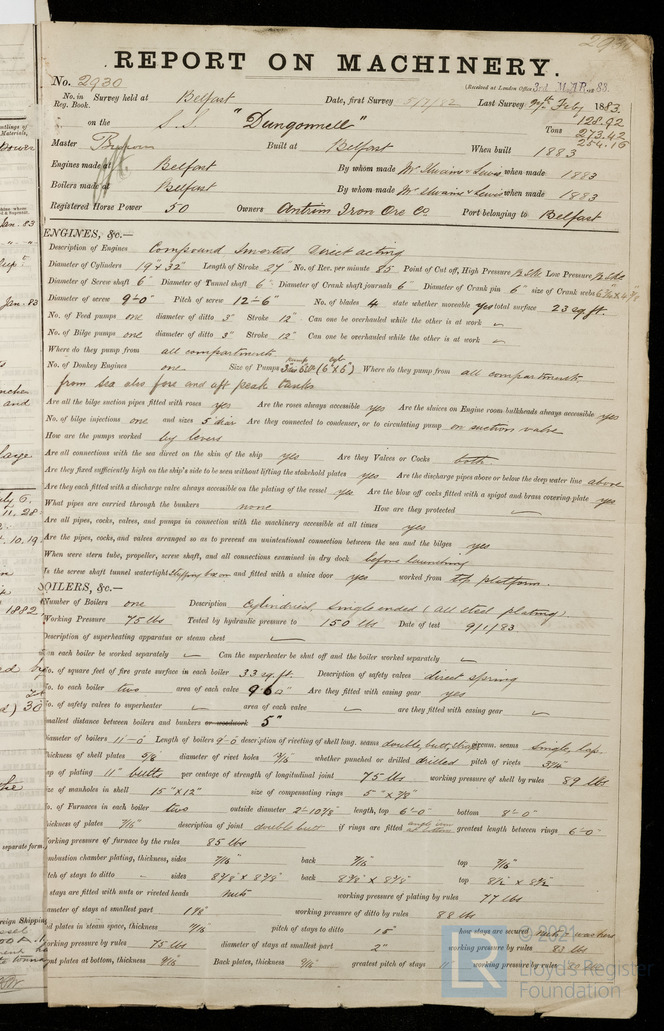 2930
REPORT ON MACHINERY.
No. 2930
(Received at London Office 3rd MAR. 83.
No. in Reg. Book. Survey held at Belfast Date, first Survey 5/7/82 Last Survey 27th Feby 1883.
on the S.S. "Dungonnell" Tons 128.92 273.42 254.16
Master Built at Belfast When built 1883
Engines made at Belfast By whom made McIlwaine & Lewis when made 1883
Boilers made at Belfast By whom made McIlwaine & Lewis when made 1883
Registered Horse Power 50 Owners Antrim Iron Ore Co Port belonging to Belfast
ENGINES, &c.—
Description of Engines Compound Inverted Direct acting
Diameter of Cylinders 19" & 32" Length of Stroke 27" No. of Rev. per minute 85 Point of Cut off, High Pressure Low Pressure
Diameter of Screw shaft 6" Diameter of Tunnel shaft 6" Diameter of Crank shaft journals 6" Diameter of Crank pin 6" size of Crank webs
Diameter of screw 9'-0" Pitch of screw 12'-6" No. of blades 4 state whether moveable yes total surface 23 sq. ft.
No. of Feed pumps one diameter of ditto 3" Stroke 12" Can one be overhauled while the other is at work
No. of Bilge pumps one diameter of ditto 3" Stroke 12" Can one be overhauled while the other is at work
Where do they pump from all compartments
No. of Donkey Engines one Size of Pumps Where do they pump from all compartments,
from sea also fore and aft peak tanks
Are all the bilge suction pipes fitted with roses yes Are the roses always accessible yes Are the sluices on Engine room bulkheads always accessible yes
No. of bilge injections one and sizes 5" diar Are they connected to condenser, or to circulating pump on suction valve
How are the pumps worked by levers
Are all connections with the sea direct on the skin of the ship yes Are they Valves or Cocks both
Are they fixed sufficiently high on the ship's side to be seen without lifting the stokehold plates yes Are the discharge pipes above or below the deep water line above
Are they each fitted with a discharge valve always accessible on the plating of the vessel yes Are the blow off cocks fitted with a spigot and brass covering plate yes
What pipes are carried through the bunkers none How are they protected
Are all pipes, cocks, valves, and pumps in connection with the machinery accessible at all times yes
Are the pipes, cocks, and valves arranged so as to prevent an unintentional connection between the sea and the bilges yes
When were stern tube, propeller, screw shaft, and all connections examined in dry dock before launching
Is the screw shaft tunnel watertight stuffing box on and fitted with a sluice door yes worked from top platform.
BOILERS, &c.—
Number of Boilers one Description Cylindrical, single ended (all steel plating)
Working Pressure 75 lbs Tested by hydraulic pressure to 150 lbs Date of test 9/1/83
Description of superheating apparatus or steam chest
Can each boiler be worked separately Can the superheater be shut off and the boiler worked separately
No. of square feet of fire grate surface in each boiler 33 sq. ft. Description of safety valves direct spring
No. to each boiler two area of each valve Are they fitted with easing gear yes
No. of safety valves to superheater area of each valve are they fitted with easing gear
Smallest distance between boilers and bunkers or woodwork 5"
Diameter of boilers 11'-0" Length of boilers 9'-0" description of riveting of shell long. seams double butt circum. seams single, lap.
Thickness of shell plates diameter of rivet holes whether punched or drilled drilled pitch of rivets
Lap of plating 11" butts per centage of strength of longitudinal joint 75 lbs working pressure of shell by rules 89 lbs
Size of manholes in shell 15" x 12" size of compensating rings 5" x 7/8"
No. of Furnaces in each boiler two outside diameter 2'-10 7/8" length, top 6'-0" bottom 8'-0"
Thickness of plates 7/16" description of joint double butt if rings are fitted greatest length between rings 6'-0"
Working pressure of furnace by the rules 85 lbs
Combustion chamber plating, thickness, sides 7/16" back 7/16" top 7/16"
Pitch of stays to ditto sides 8 7/8" x 8 7/8" back 8 7/8" x 8 7/8" top 8 1/2" x 8 1/2"
If stays are fitted with nuts or riveted heads nuts working pressure of plating by rules 77 lbs
Diameter of stays at smallest part working pressure of ditto by rules 88 lbs
End plates in steam space, thickness pitch of stays to ditto 15" how stays are secured nuts & washers
Working pressure by rules 75 lbs diameter of stays at smallest part 2" working pressure by rules 83 lbs
Front plates at bottom, thickness 9/16" Back plates, thickness 9/16" greatest pitch of stays 11" working pressure by rules
© 2021
LR
Lloyd's Register
Foundation